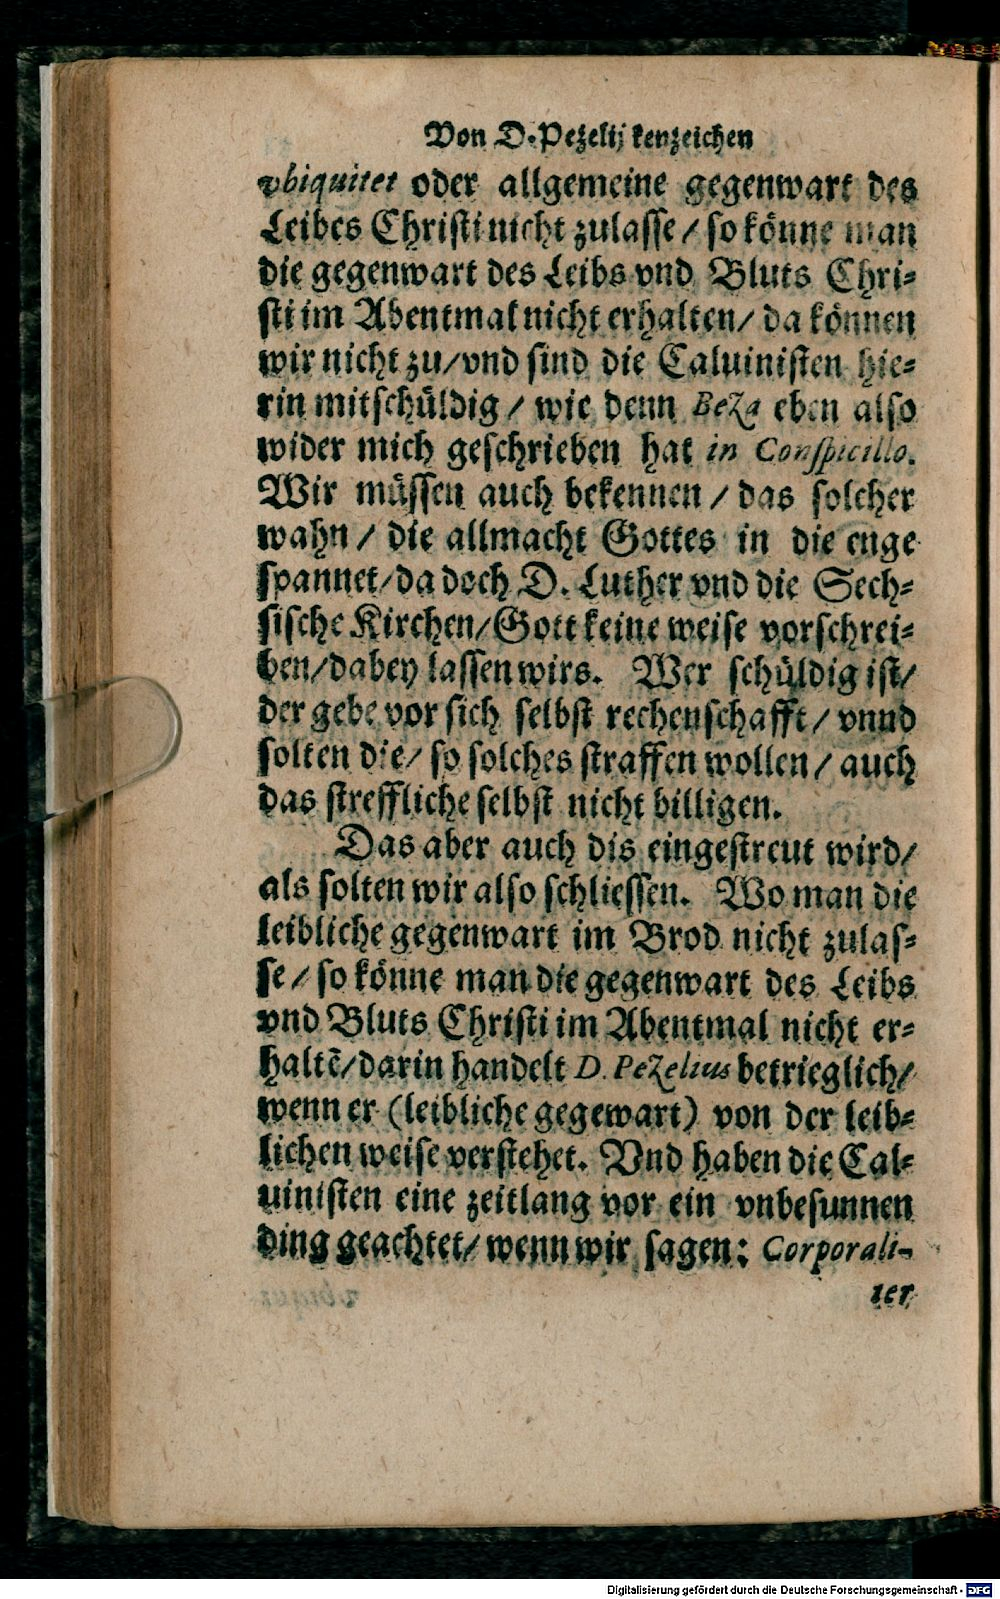 Von D. Pezelij kenzeichen
vbiquitet oder allgemeine gegenwart des
Leibes Christi nicht zulasse / so könne man
die gegenwart des Leibs vnd Bluts Chri-
sti im Abentmal nicht erhalten / da können
wir nicht zu / vnd sind die Caluinisten hie-
rin mitschüldig / wie denn Beza eben also
wider mich geschrieben hat in Conspicillo.
Wir müssen auch bekennen / das solcher
wahn / die allmacht Gottes in die enge
spannet / da doch D. Luther vnd die Sech-
sische Kirchen / Gott keine weise vorschrei-
ben / dabey lassen wirs. Wer schüldig ist /
der gebe vor sich selbst rechenschafft / vnnd
solten die / so solches straffen wollen / auch
das streffliche selbst nicht billigen.
Das aber auch dis eingestreut wird /
als solten wir also schliessen. Wo man die
leibliche gegenwart im Brod nicht zulas-
se / so könne man die gegenwart des Leibs
vnd Bluts Christi im Abentmal nicht er-
haltē / darin handelt D. Pezelius betrieglich /
wenn er (leibliche gegewart) von der leib-
lichen weise verstehet. Vnd haben die Cal-
uinisten eine zeitlang vor ein vnbesunnen
ding geachtet / wenn wir sagen: Corporali-
ter
Digitalisierung gefördert durch die Deutsche Forschungsgemeinschaft - DFG